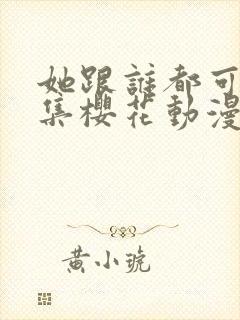 她跟誰都可
集櫻花動漫
黄小琥